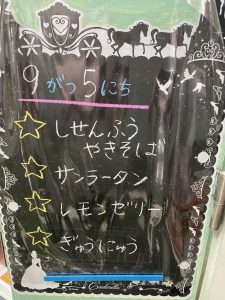 9がつ5にち
☆しせんふう
やきそば
☆サンラータン
☆レモンゼリー
☆ぎゅうにゅう
Cinderella